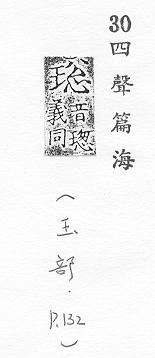 30 四聲篇海
音
義同
(玉部．P.132)